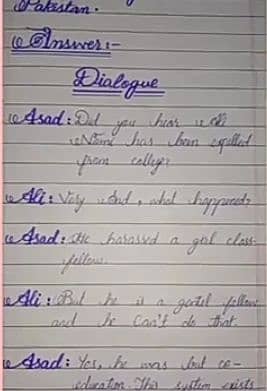 Pakistan.
Answer:-
Dialogue
Asad: Did you hear
has been expelled
from college?
Ali: Very sad, what happened?
Asad: He harassed a girl class
fellow.
Ali: But he is a gentel fellow
and he can't do that.
Asad: Yes, he was but co-
education. This system exists